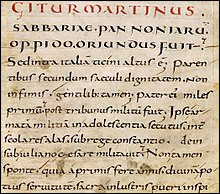 IGITUR MARTINUS
SABBARIAE PANNONIARU
OPPIDO ORIUNDUS FUIT
Sed intra italia ticini altus e Paren
tibus secundum saeculi dignitatem Non
infimis gentilib tamen Pater ei miles
primu post tribunus militu fuit Ipse ar
mata militia in adolescentia secutus int
scolares alas sub rege constantio dein
sub iuliano cesare militauit Non tamen
sponte quia a primis fere annis diuina po
tius seruitute sacra inlustris pueri infan